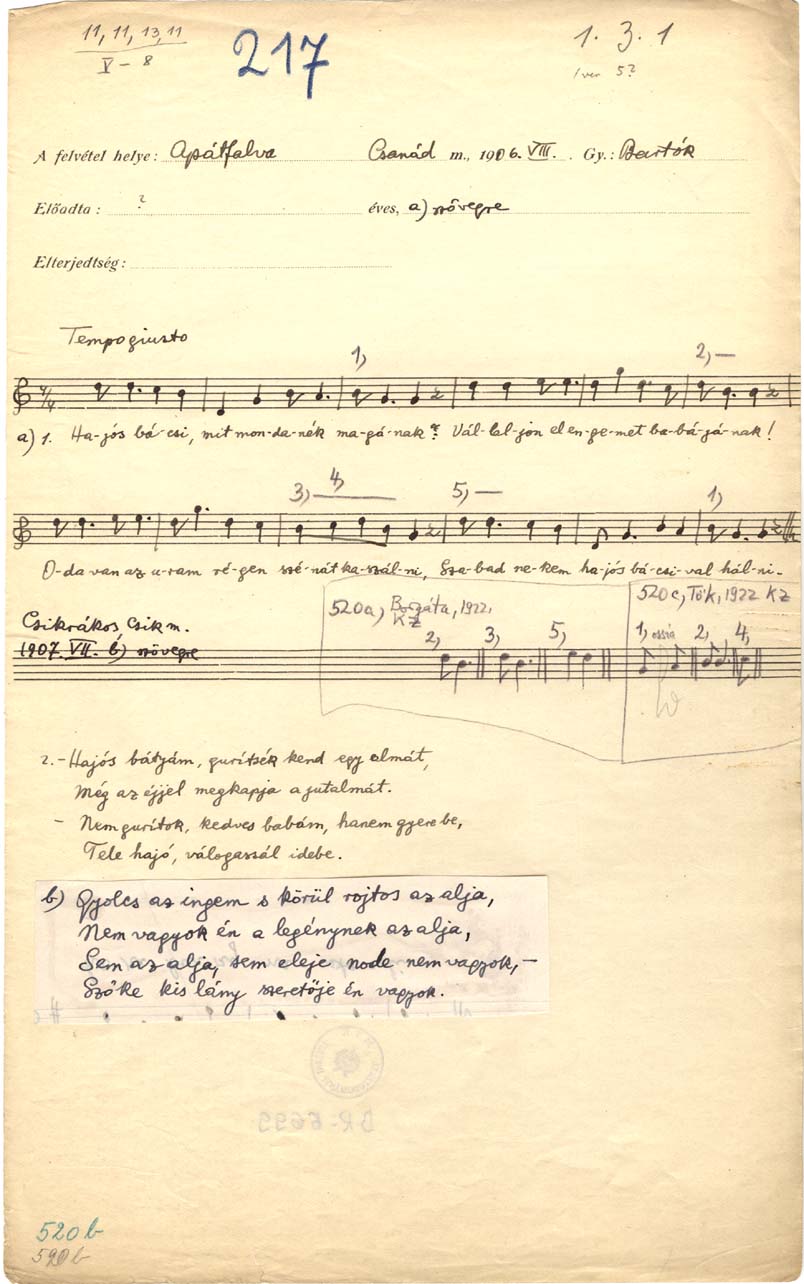 11, 11, 13, 11
V – 8
217
1. 3. 1
1 ver 5?
A felvétel helye: Apátfalva Csanád m., 1906. VIII. Gy.: Bartók
Előadta: ? éves, a) szövegre
Elterjedtség:
Tempo giusto
1, 2, –
a) 1. Ha-jós bá-csi, mit mon-da-nék ma-gá-nak? Vál-lal-jon el en-ge-met ba-bá-já-nak!
3, 4, 5, – 1,
O-da van az u-ram ré-gen szé-nát ka-szál-ni, Sza-bad ne-kem ha-jós bá-csi-val hál-ni.
520a, Bozgáta, 1922, KZ
520c, Tök, 1922 KZ
Csikrákos Csik m.
1907. VII. b) szövegre
2, 3, 5, 1, ossia 2, 4,
2. – Hajós bátyám, gurítsék kend egy almát,
Még az éjjel megkapja a jutalmát.
– Nem gurítok, kedves babám, hanem gyere be,
Tele hajó, válogassál idebe.
b) Gyolcs az ingem s körül rojtos az alja,
Nem vagyok én a legénynek az alja,
Sem az alja, sem eleje node nem vagyok, –
Szőke kis lány szeretője én vagyok.
BR-6699
520b
520b